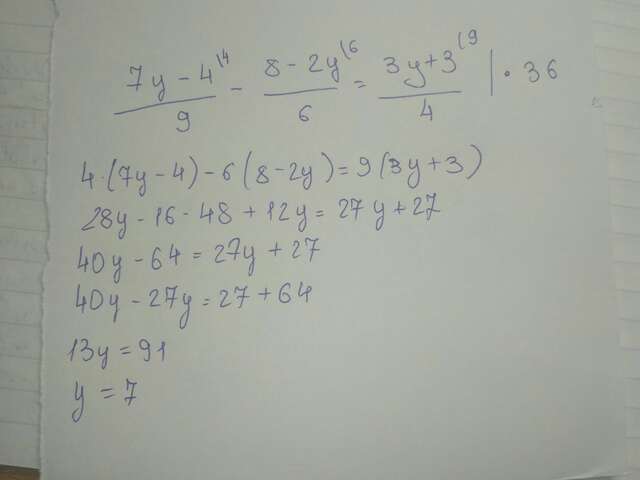 (7y - 4)/9 \4 - (8 - 2y)/6 \6 = (3y + 3)/4 \9 | · 36
4·(7y - 4) - 6(8 - 2y) = 9(3y + 3)
28y - 16 - 48 + 12y = 27y + 27
40y - 64 = 27y + 27
40y - 27y = 27 + 64
13y = 91
y = 7